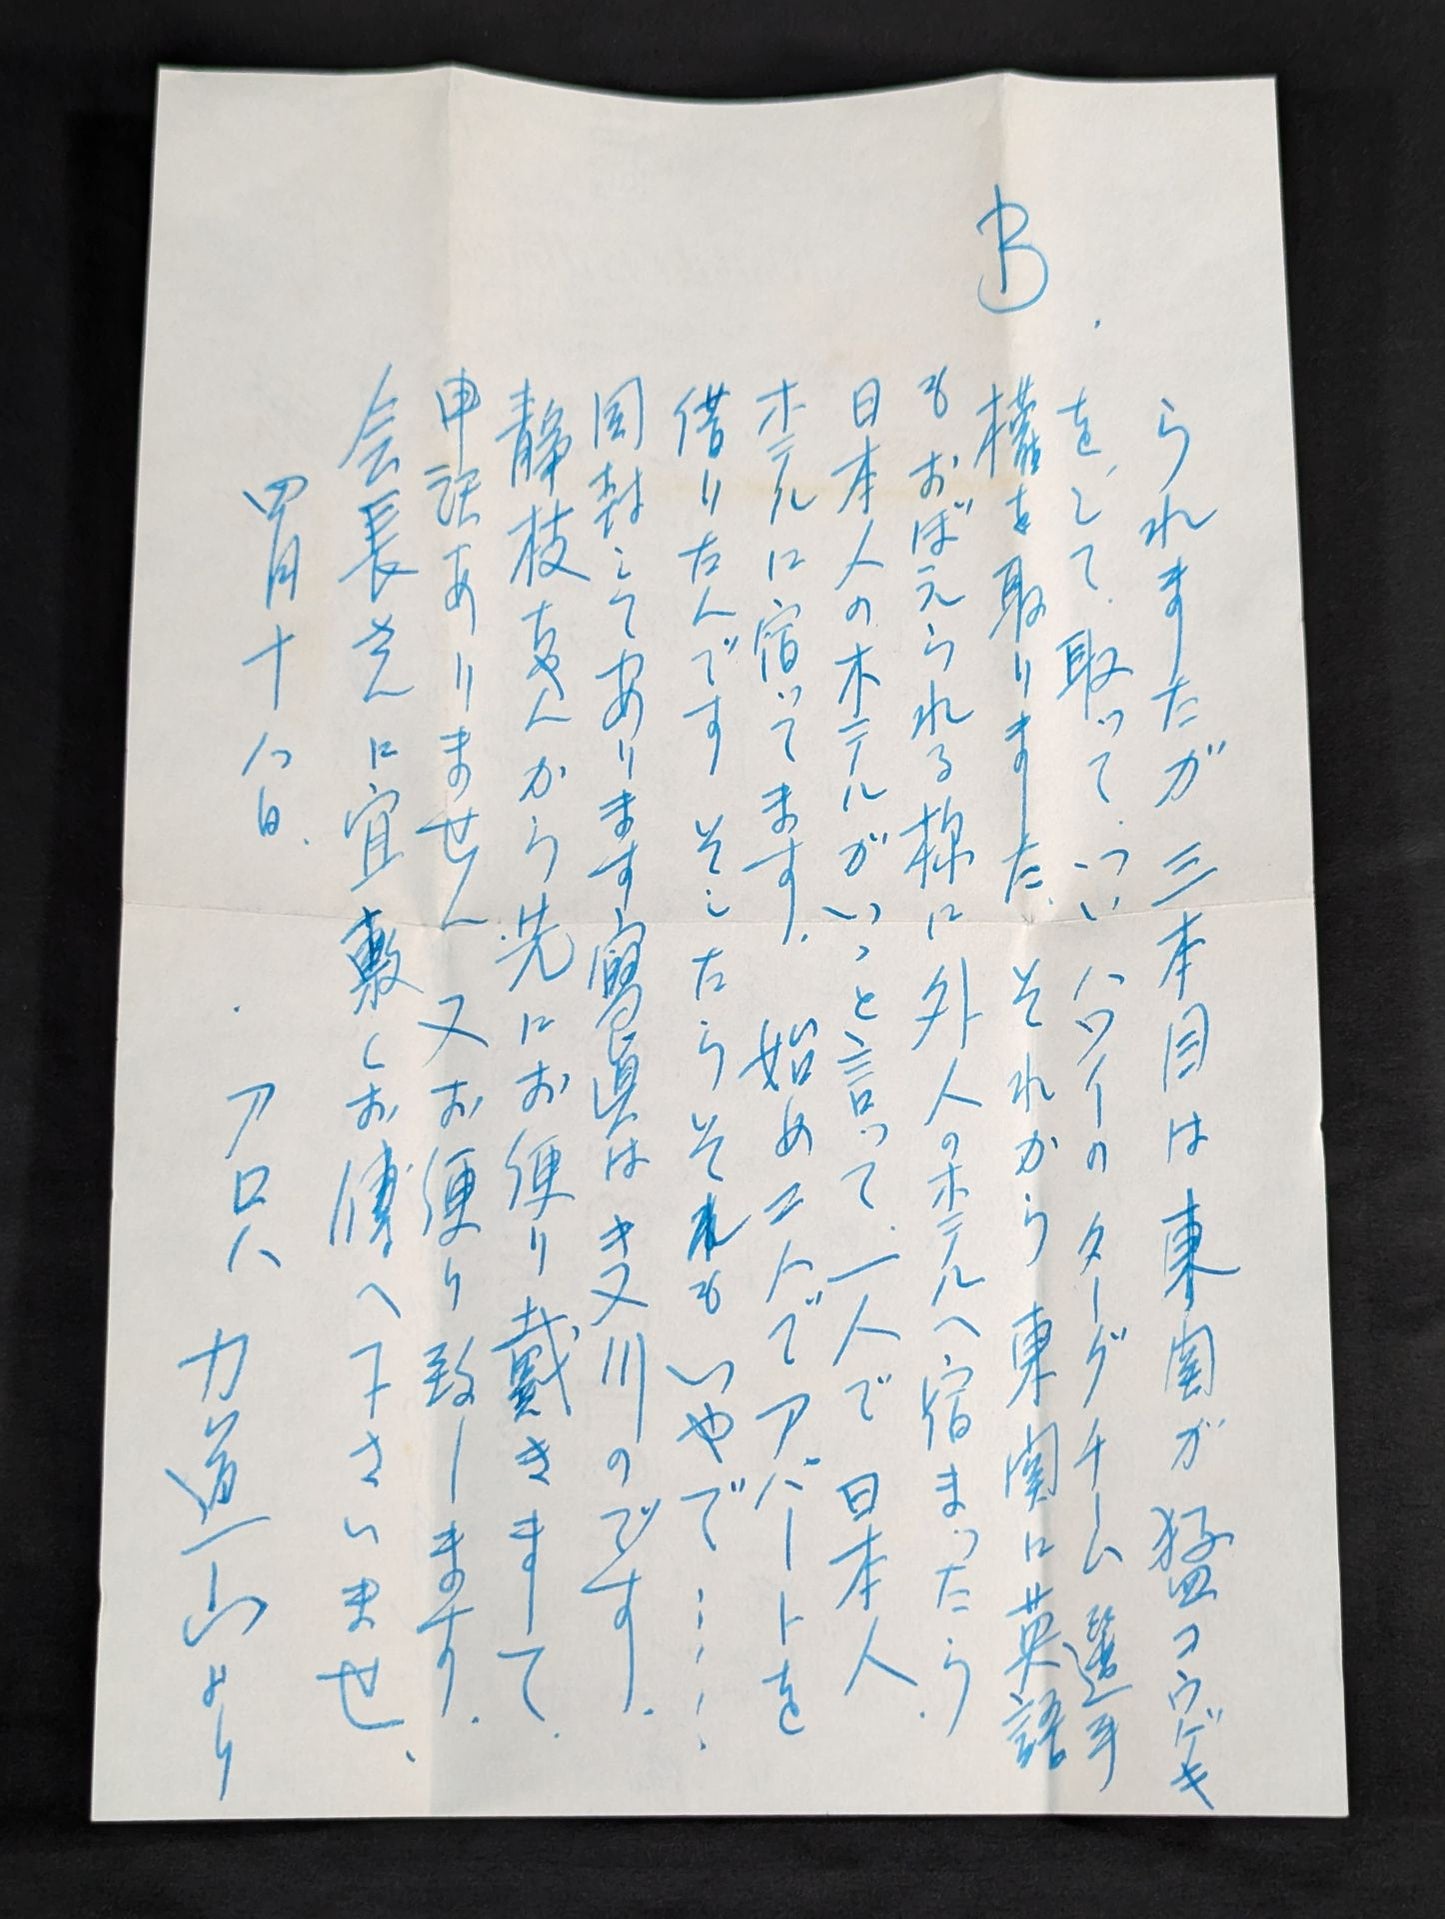 B
られますたが 三本目は東関が猛コウゲキ
を、して、取って、ついハワイのターグチーム選手
権を取りますた、それから東関に英語
もおぼえられる様に外人のホテルへ宿まったら
日本人のホテルがいっと言って、一人で日本人
ホテルに宿ってます、始め二人でアパートを
借りたんです そしたらそれもいやで……
同封してあります寫真はき又川のです、
静枝ちゃんから先にお便り戴きまして、
申訳ありません 又お便り致します、
会長さんに宜敷くお傳へ下さいませ、
四月十八日、
アロハ 力道山より